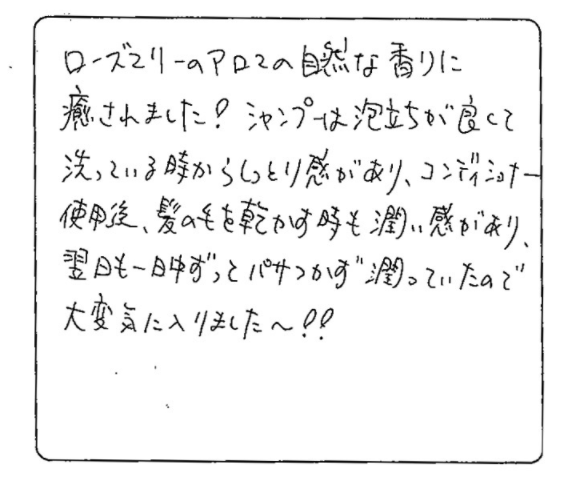 ローズマリーのアロマの自然な香りに
癒されました！シャンプーは泡立ちが良くて
洗っている時からしっとり感があり、コンディショナー
使用後、髪の毛を乾かす時も潤い感があり、
翌日も一日中ずっとパサつかず潤っていたので
大変気に入りました〜！！